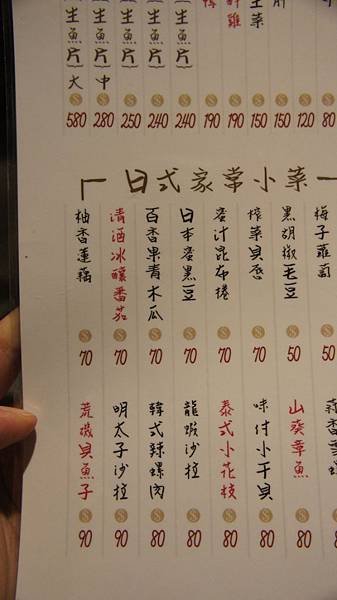 生魚片(大 580
生魚片(中 280
生魚片( 250
生魚片( 240
生魚片( 240
190
鮮雞 190
生菜 150
肝 150
120
80
日式家常小菜
柚香蓮藕 70
清酒冰釀番茄 70
百香果青木瓜 70
日本蜜黑豆 70
蜜汁昆布捲 70
榨菜貝唇 70
黑胡椒毛豆 50
梅子蘿蔔 50
荒磯貝魚子 90
明太子沙拉 90
韓式辣螺肉 80
龍蝦沙拉 80
泰式小花枝 80
味付小干貝 80
山葵章魚 80
蒜香 螺 80